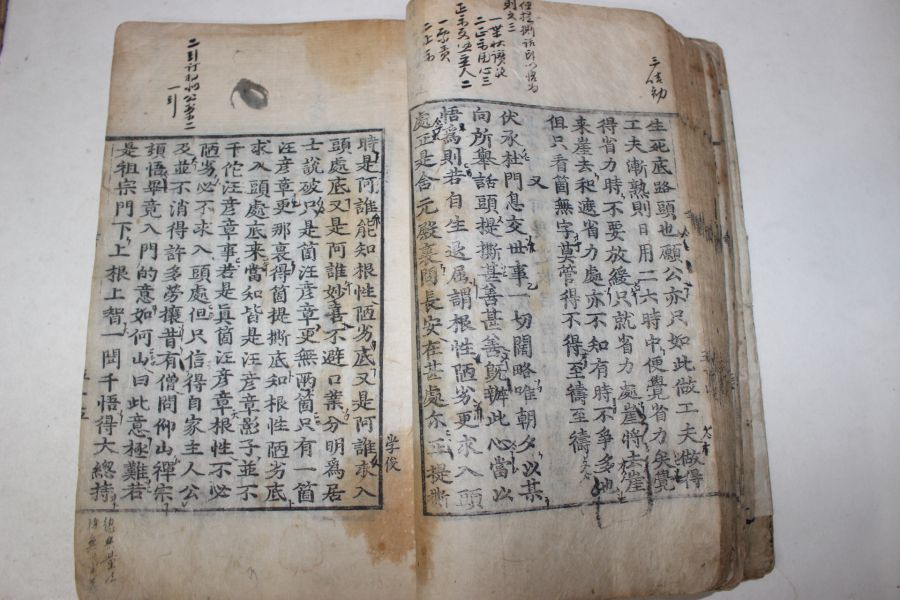 生死底路頭也願公亦只如此做工夫做得
工夫漸熟則日用二六時中便覺省力矣覺
得省力時不要放緩只就省力處崖將去崖
来崖去和遮省力處亦不知有時不爭多地
但只看箇無字莫管得不得至禱至禱
又
伏承杜門息交世事一切闊略唯朝夕以某
向所舉話頭提撕甚善甚善旣辦此心當以
悟爲則若自生退屈謂根性陋劣更求入頭
處正是含元殿裏問長安在甚處亦正提撕
学俊
時是阿誰能知根性陋劣底又是阿誰求入
頭處底又是阿誰妙喜不避口業分明爲居
士說破只是箇汪彦章更無兩箇只有一箇
汪彦章更那裏得箇提撕底知根性陋劣底
求入頭處底來當知皆是汪彦章影子並不
干佗汪彦章事若是眞箇汪彦章根性不必
陋劣必不求入頭處但只信得自家主人公
及並不消得許多勞攘昔有僧問仰山禪宗
頓悟畢竟入門的意如何山曰此意極難若
是祖宗門下上根上智一聞千悟得大總持